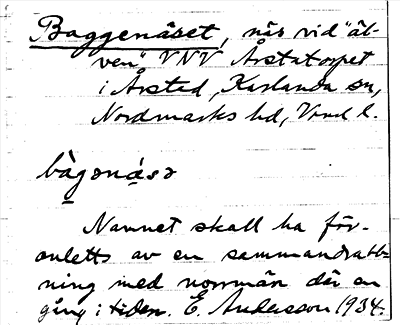 Baggenäset, näs vid "äl-
ven" VNV Årstatorpet
i Årstad, Karlanda sn,
Nordmarks hd, Vrml l.
bàgənä́sə
Namnet skall ha för-
anletts av en sammandrabb-
ning med norrmän där en
gång i tiden. E. Andersson 1934.